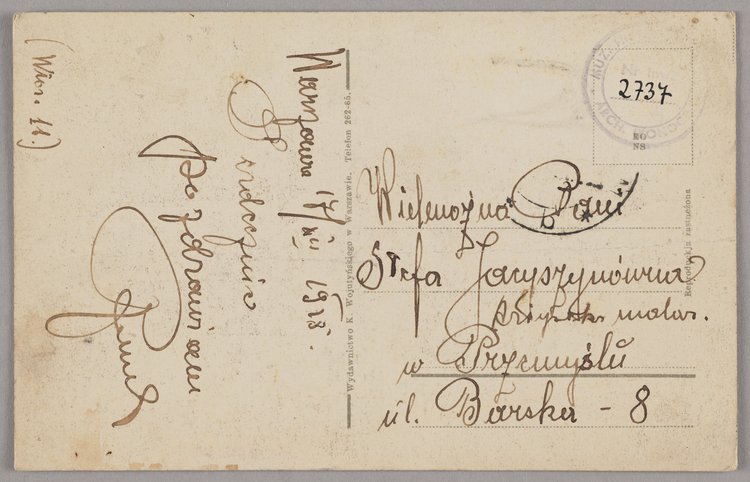 (Wior. 11.)
Warszawa 17/XII 1928.
Serdecznie
pozdrawiam
Wydawnictwo K. Wojutyńskiego w Warszawie. Telefon 262-85.
2737
RO
NS
Wielmożna Pani
Stefa Jacyszynówna
w Przemyślu
ul. Barska - 8
Reprodukcja zastrzeżona